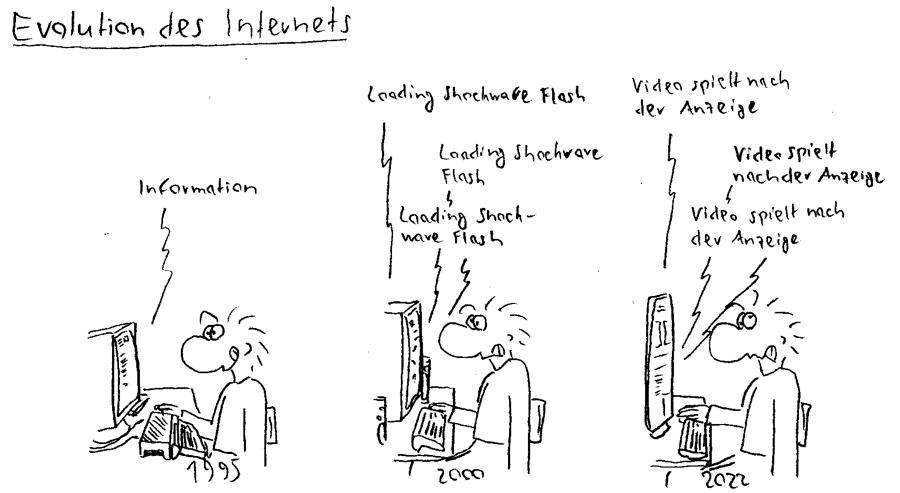 Evolution des Internets
Information
1995
Loading Shockwave Flash
Loading Shockwave
Flash
Loading Shock-
wave Flash
2000
Video spielt nach
der Anzeige
Video spielt
nach der Anzeige
Video spielt nach
der Anzeige
2022